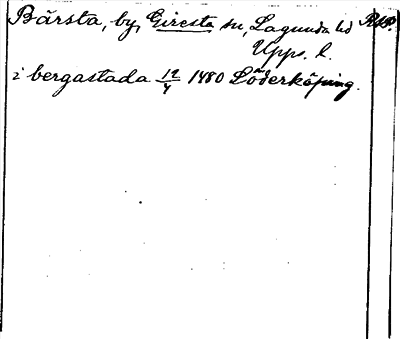 Bärsta, by, Giresta sn, Lagunda hd RAP.
Upps. l.
i bergastada 12/4 1480 Söderköping.